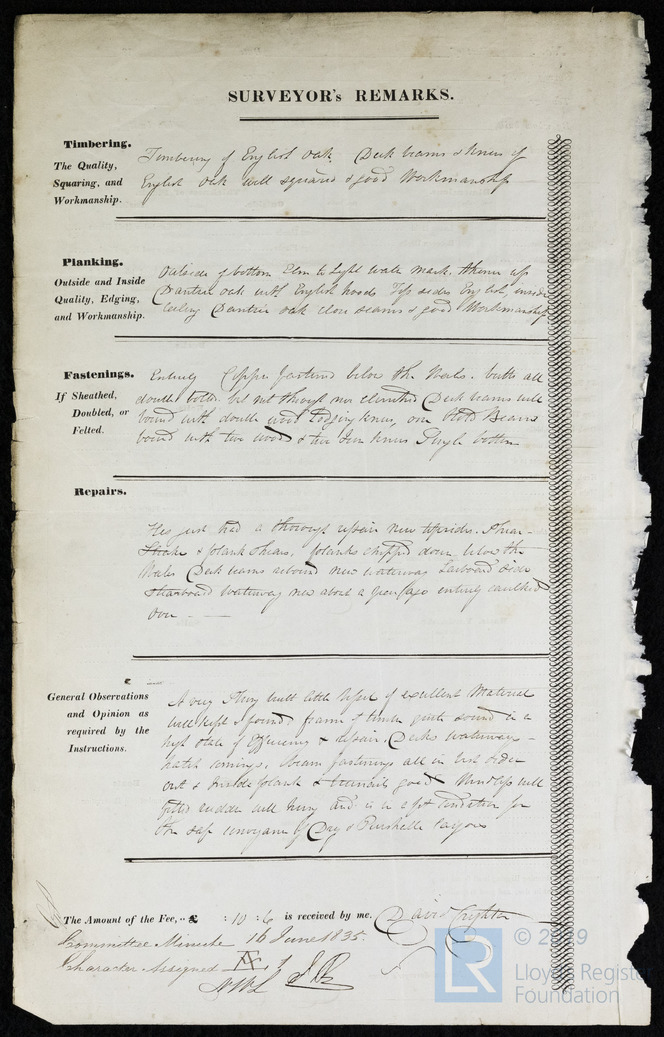 SURVEYOR's REMARKS.
Timbering.
The Quality,
Squaring, and
Workmanship.
Timbering of English Oak, Deck beams & knees of
English Oak well squared & good Workmanship
Planking.
Outside and Inside
Quality, Edging,
and Workmanship.
Outside of bottom Elm to Light water mark, thence up
Dantzic oak with English hoods Top sides English, inside
ceiling Dantzic oak close seams & good Workmanship
Fastenings.
If Sheathed,
Doubled, or
Felted.
Entirely Copper fastened below the Wales. butts all
double bolted. but not through nor clenched Deck beams well
bound with double wood Lodging knees, one Hold Beam
bound with two wood & two Iron knees Single bottom
Repairs.
Has just had a thorough repair new topsides. Shear-
Strake & plank Shears, planks chipped down below the
Wales Deck beams rebound new waterway Larboard side
Starboard Waterway new about a year ago entirely caulked
over
General Observations
and Opinion as
required by the
Instructions.
A very built little Vessel of excellent Material
well kept & found, frame & timber quite sound in a
high state of Efficiency & repair. Decks waterways
hatch comings, beam fastenings all in best order
out & inside plank & treenails good Windlass well
fitted rudder well hung and is in a fit condition for
the safe conveyance of Dry & Perishable Cargoes
The Amount of the Fee, .. £ : 10 : 6 is received by me, David Crighton
Committee Minute 16 June 1835.
Character Assigned A 1
© 2019
LR
Lloyd's Register
Foundation